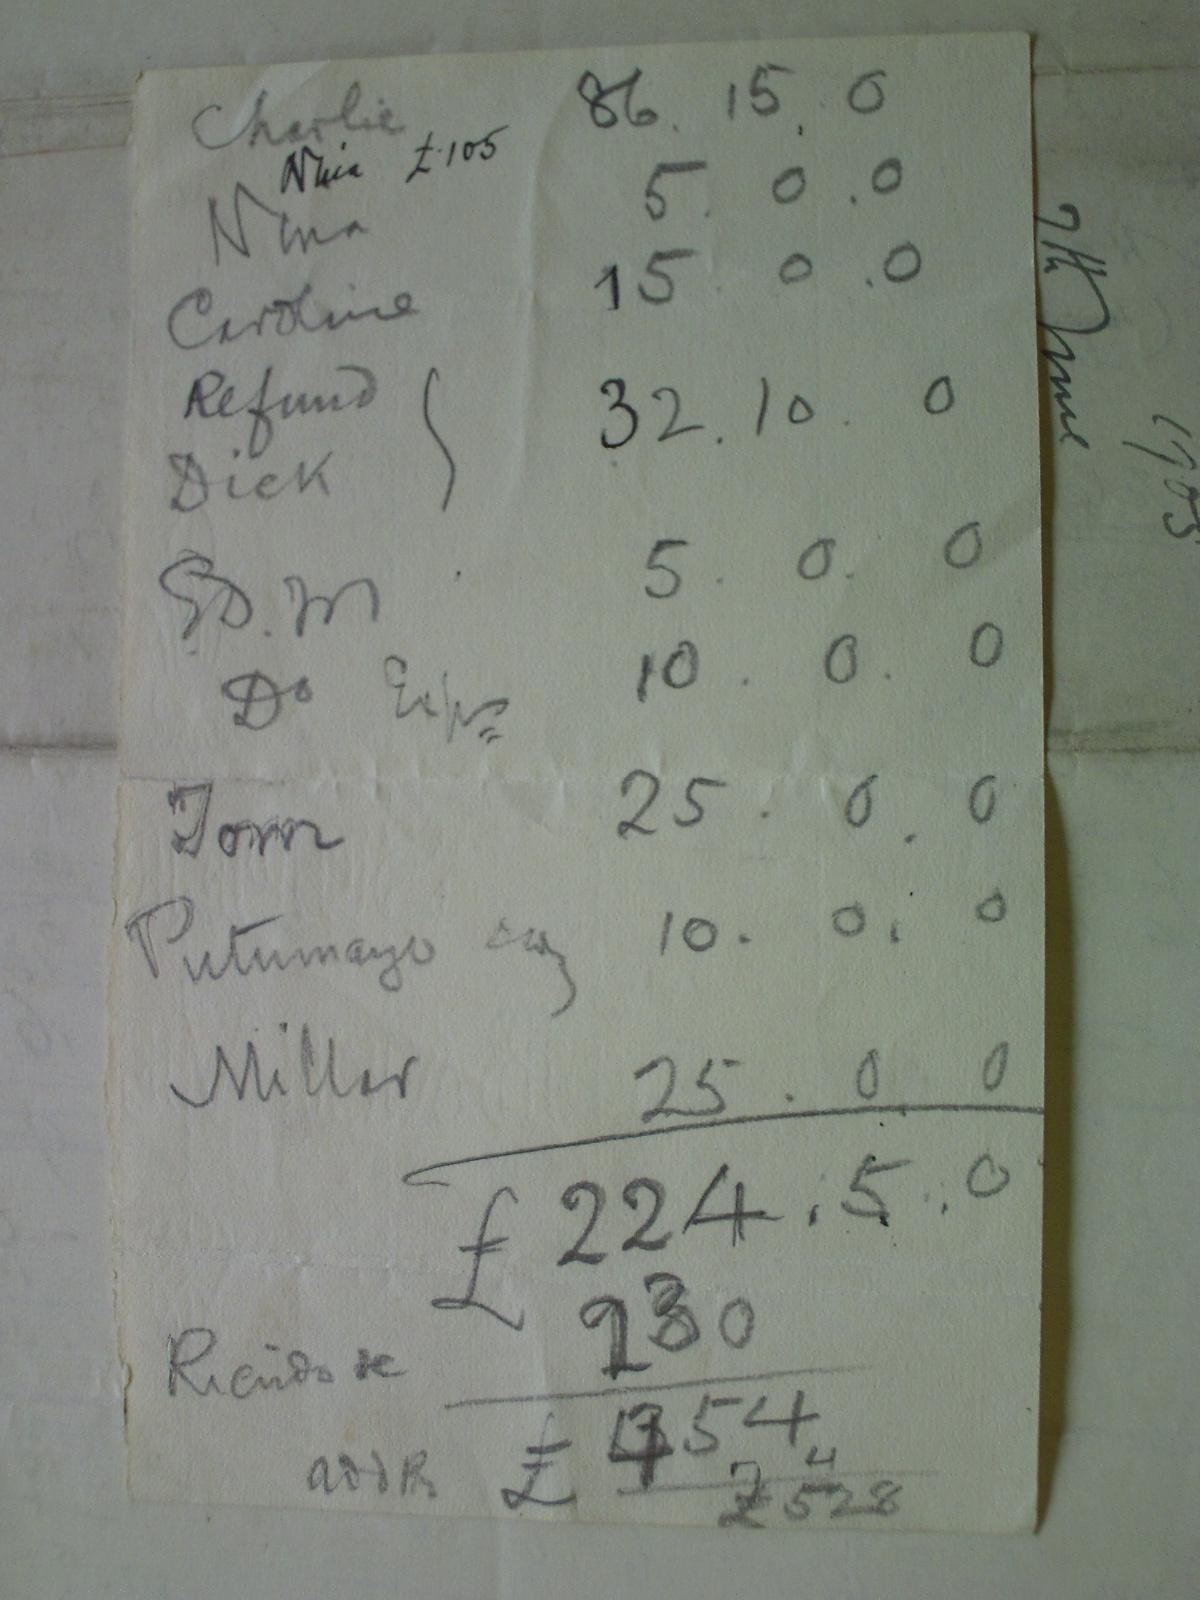 Charlie 86. 15. 0
Nina £105
Nina 5. 0. 0
Caroline 15. 0. 0
Refund
Dick } 32. 10. 0
5. 0. 0
Do Exps 10. 0. 0
Tom 25. 0. 0
Putumayo 10. 0. 0
Millar 25. 0. 0
£ 224. 5. 0
230
£ 454
£ 528
7th June
1905